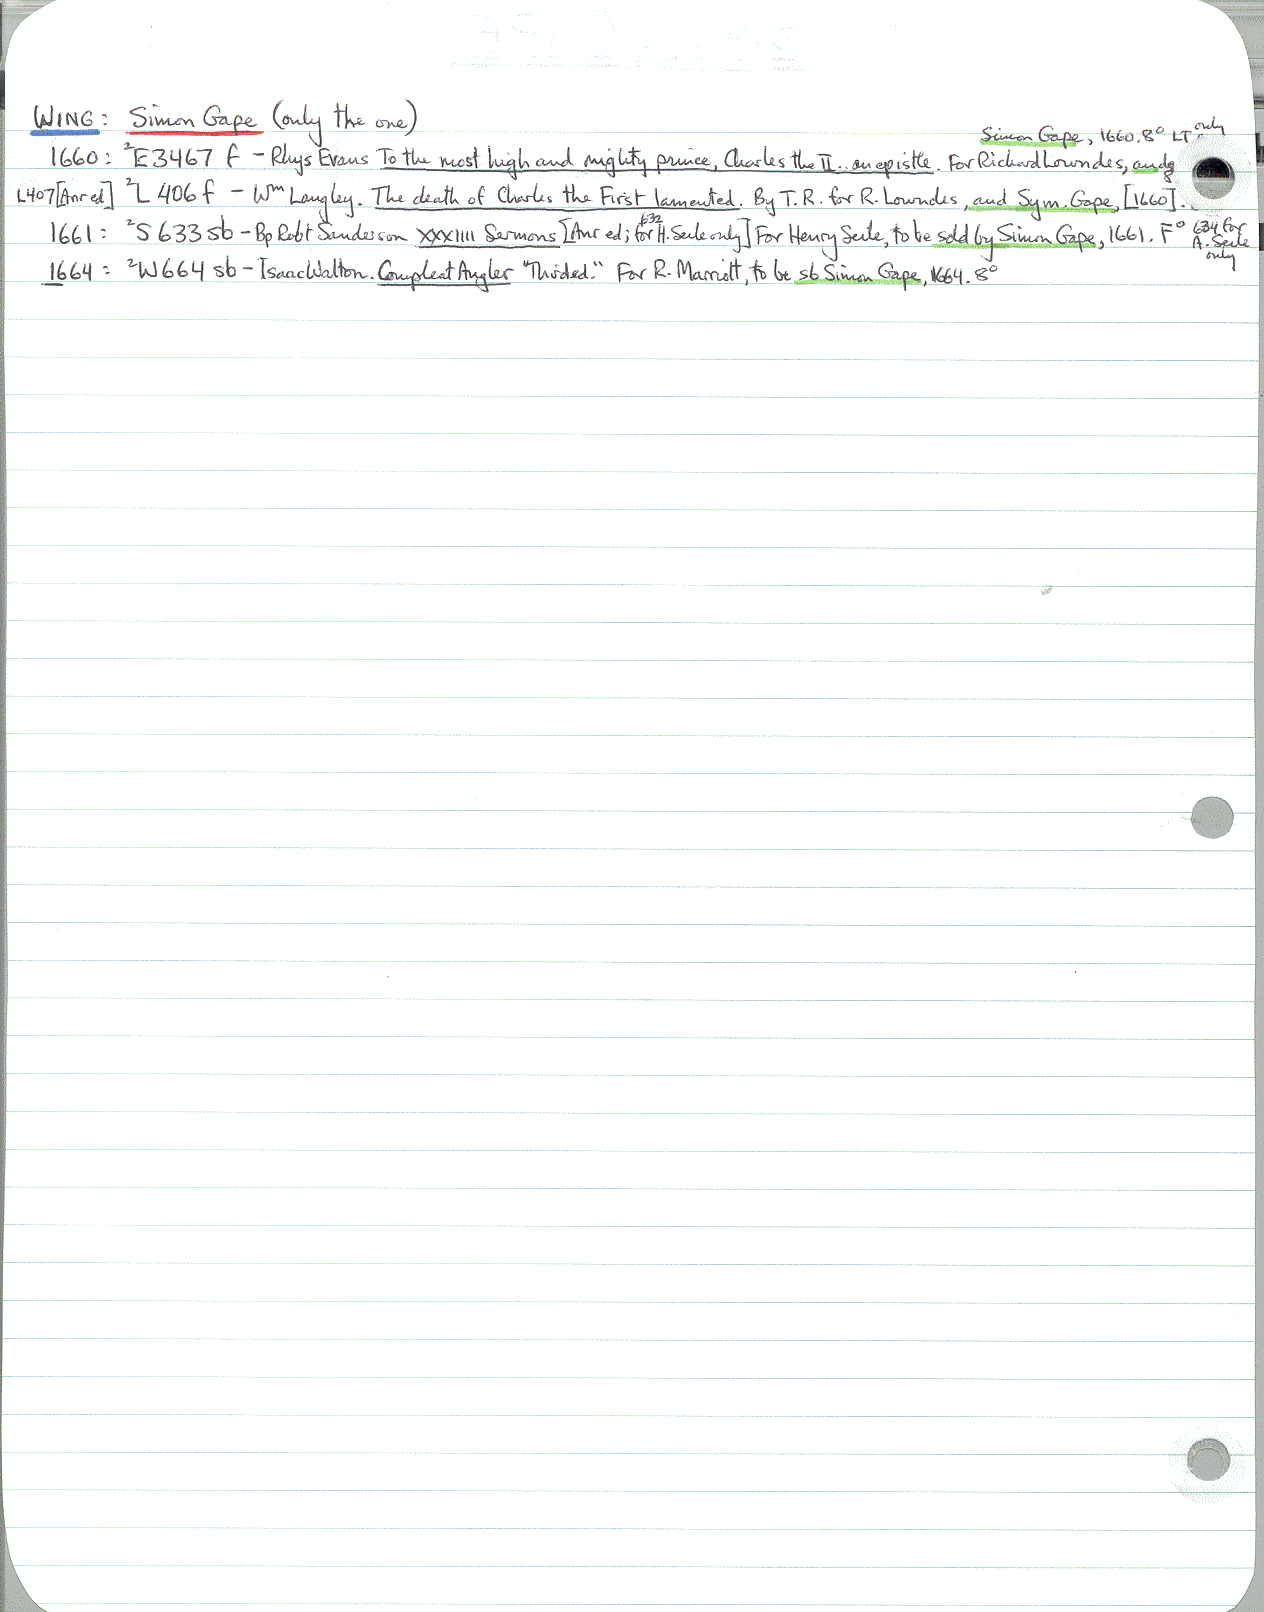 WING: Simon Gape (only the one)
Simon Gape, 1660. 8° LT only
1660: ²E3467 f – Rhys Evans To the most high and mighty prince, Charles the II.. an epistle. For Richard Lowndes, and
L407 [Anr ed] ²L 406 f – Wm Langley. The death of Charles the First lamented. By T.R. for R. Lowndes, and Sym. Gape, [1660]. 8
1661: ²S 633 sb – Bp Robt Sanderson XXXIIII Sermons [Anr ed; 632 for H. Seile only] For Henry Seile, to be sold by Simon Gape, 1661. F° 634 for A. Seile only
1664: ²W664 sb – Isaac Walton. Compleat Angler "Third ed." For R. Marriott, to be sb Simon Gape, 1664. 8°